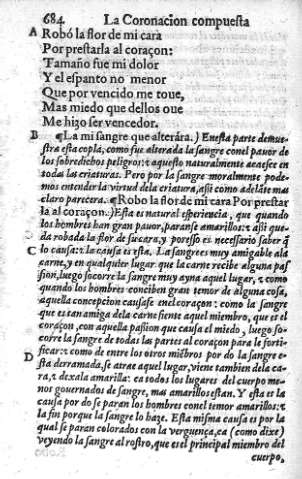 684 La Coronacion compuesta
A Robó la flor de mi cara
Por prestarla al coraçon:
Tamaño fue mi dolor
Y el espanto no menor
Que por vencido me toue,
Mas miedo que dellos oue
Me hizo ser vencedor.
B ¶La mi sangre que alterára.) En esta parte demue-
stra esta copla, como fue alterada la sangre conel pauor de
los sobredichos peligros: τ aquesto naturalmente acaesce en
todas las criaturas. Pero por la sangre moralmente pode-
mos entender la virtud dela criatura, assi como adelãte mas
claro parecera. ¶Robó la flor de mi cara Por prestar
la al coraçon.) Esta es natural esperiencia, que quando
los hombres han gran pauor, paranse amarillos: τ assi que-
da robada la flor de su cara, y por esso es necessario saber q̃
C lo causa: τ la causa es esta. La sangre es muy amigable ala
carne, y en qualquier lugar que la carne recibe alguna pas
sion, luego socorre la sangre muy ayna aquel lugar, τ como
quando los hombres conciben gran temor de alguna cosa,
aquella concepcion causase enel coraçon: τ como la sangre
que es tan amiga dela carne siente aquel miembro, que es el
coraçon, con aquella passion que causa el miedo, luego so-
corre la sangre de todas las partes al coraçon para le forti-
D ficar: τ como de entre los otros miẽbros por do la sangre e-
sta derramada, se atrae aquel lugar, viene tambien dela ca-
ra, τ dexala amarilla: ca todos los lugares del cuerpo me-
nos gouernados de sangre, mas amarillos estan. Y esta es la
causa por do se paran los hombres conel temor amarillos: τ
la fin porque la sangre lo haze. Esta misma causa es por la
qual se paran colorados con la verguença, ca (como dixe)
veyendo la sangre al rostro, que es el principal miembro del
cuerpo,